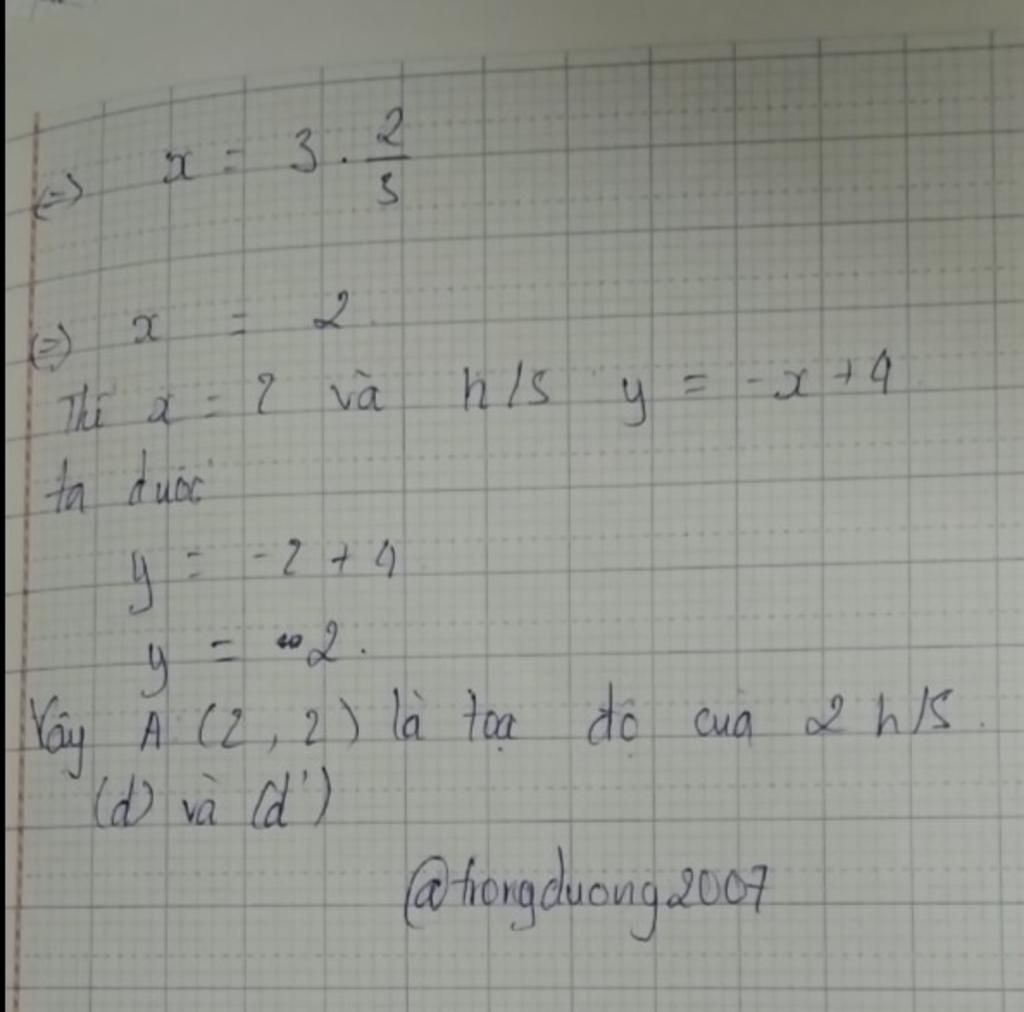 ⇔ x = 3 . 2/3
⇔ x = 2
Thế x = 2 và h/s y = -x + 4
ta được
y = -2 + 4
y = 2.
Vậy A (2, 2) là toạ độ của 2 h/s.
(d) và (d')
@trongduong2007